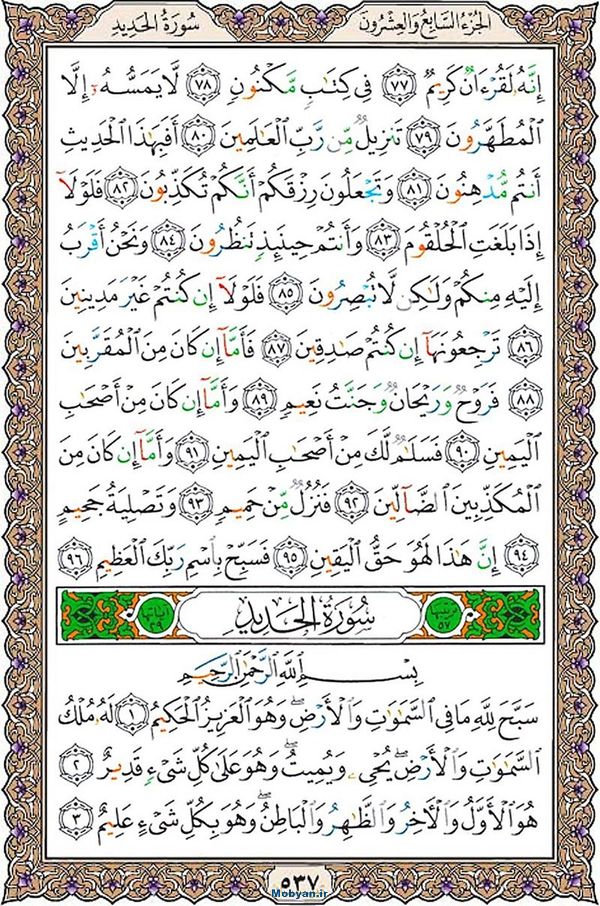 سُورَةُ الحَدِيدِ الجُزءُ السَّابِعُ وَالعِشرُونَ
إِنَّهُۥ لَقُرۡءَانٞ كَرِيمٞ ٧٧ فِي كِتَٰبٖ مَّكۡنُونٖ ٧٨ لَّا يَمَسُّهُۥٓ إِلَّا
ٱلۡمُطَهَّرُونَ ٧٩ تَنزِيلٞ مِّن رَّبِّ ٱلۡعَٰلَمِينَ ٨٠ أَفَبِهَٰذَا ٱلۡحَدِيثِ
أَنتُم مُّدۡهِنُونَ ٨١ وَتَجۡعَلُونَ رِزۡقَكُمۡ أَنَّكُمۡ تُكَذِّبُونَ ٨٢ فَلَوۡلَآ
إِذَا بَلَغَتِ ٱلۡحُلۡقُومَ ٨٣ وَأَنتُمۡ حِينَئِذٖ تَنظُرُونَ ٨٤ وَنَحۡنُ أَقۡرَبُ
إِلَيۡهِ مِنكُمۡ وَلَٰكِن لَّا تُبۡصِرُونَ ٨٥ فَلَوۡلَآ إِن كُنتُمۡ غَيۡرَ مَدِينِينَ
٨٦ تَرۡجِعُونَهَآ إِن كُنتُمۡ صَٰدِقِينَ ٨٧ فَأَمَّآ إِن كَانَ مِنَ ٱلۡمُقَرَّبِينَ
٨٨ فَرَوۡحٞ وَرَيۡحَانٞ وَجَنَّتُ نَعِيمٖ ٨٩ وَأَمَّآ إِن كَانَ مِنۡ أَصۡحَٰبِ
ٱلۡيَمِينِ ٩٠ فَسَلَٰمٞ لَّكَ مِنۡ أَصۡحَٰبِ ٱلۡيَمِينِ ٩١ وَأَمَّآ إِن كَانَ مِنَ
ٱلۡمُكَذِّبِينَ ٱلضَّآلِّينَ ٩٢ فَنُزُلٞ مِّنۡ حَمِيمٖ ٩٣ وَتَصۡلِيَةُ جَحِيمٍ
٩٤ إِنَّ هَٰذَا لَهُوَ حَقُّ ٱلۡيَقِينِ ٩٥ فَسَبِّحۡ بِٱسۡمِ رَبِّكَ ٱلۡعَظِيمِ ٩٦
ترتيبها ٥٧ سُورَةُ الحَدِيدِ آياتها ٢٩
بِسۡمِ ٱللَّهِ ٱلرَّحۡمَٰنِ ٱلرَّحِيمِ
سَبَّحَ لِلَّهِ مَا فِي ٱلسَّمَٰوَٰتِ وَٱلۡأَرۡضِۖ وَهُوَ ٱلۡعَزِيزُ ٱلۡحَكِيمُ ١ لَهُۥ مُلۡكُ
ٱلسَّمَٰوَٰتِ وَٱلۡأَرۡضِۖ يُحۡيِۦ وَيُمِيتُۖ وَهُوَ عَلَىٰ كُلِّ شَيۡءٖ قَدِيرٌ ٢
هُوَ ٱلۡأَوَّلُ وَٱلۡأٓخِرُ وَٱلظَّٰهِرُ وَٱلۡبَاطِنُۖ وَهُوَ بِكُلِّ شَيۡءٍ عَلِيمٌ ٣
٥٣٧
Mobyan.ir